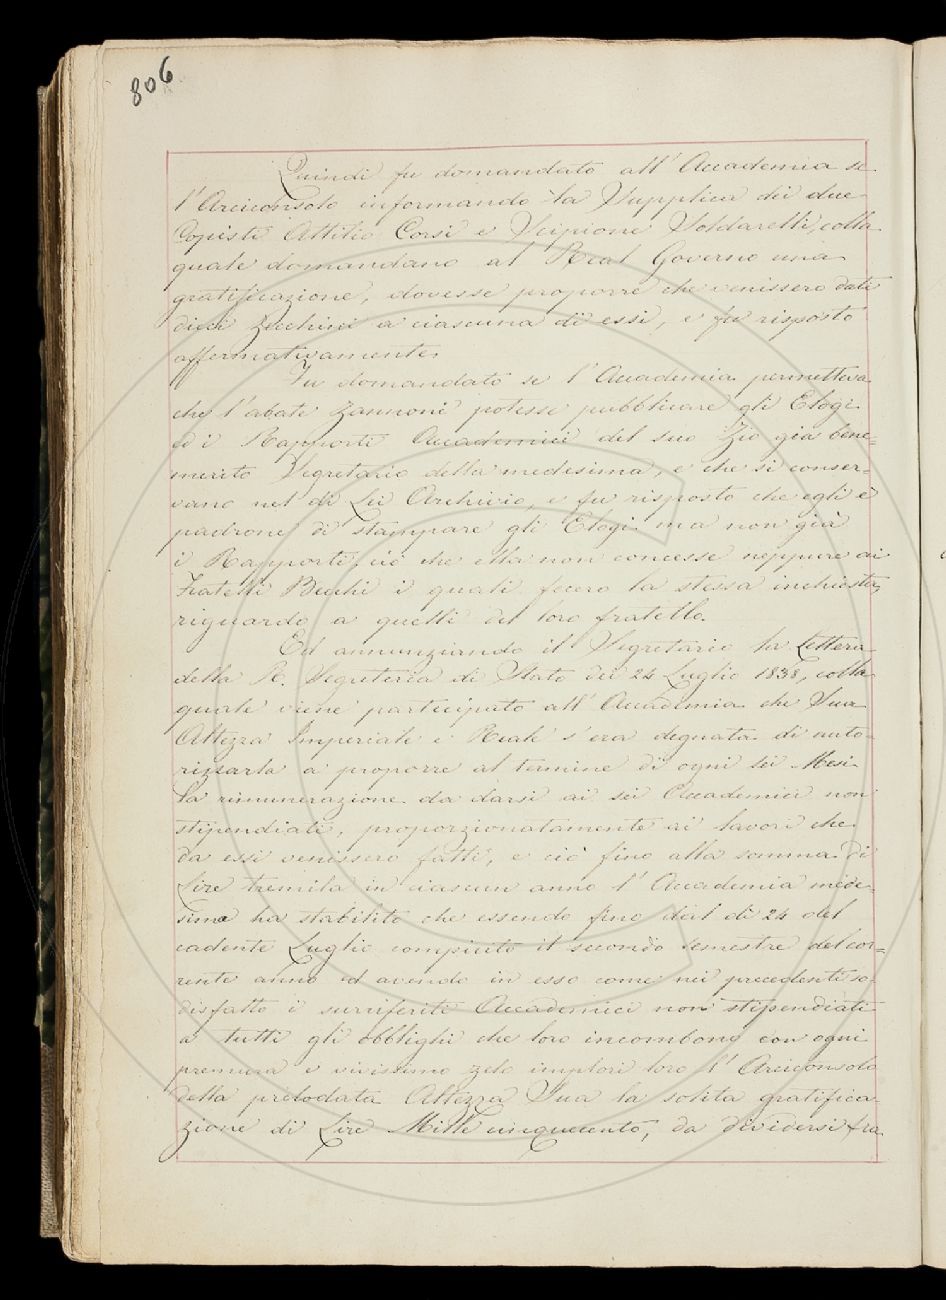 806
Quindi fu domandato all'Accademia se
l'Arciconsolo informando la Supplica dei due
Copisti Attilio Corsi e Scipione Soldarelli, colla
quale domandano al Real Governo una
gratificazione, dovesse proporre che venissero dati
dieci zecchini a ciascuna di essi, e fu risposto
affermativamente.
Fu domandato se l'Accademia permetteva
che l'abate Zannoni potesse pubblicare gli Elogi
ed i Rapporti Accademici del suo Zio già bene=
merito Segretario della medesima, e che si conser=
vano nel di Lei Archivio, e fu risposto che egli è
padrone di stampare gli Elogi ma non già
i Rapporti, ciò che ella non concesse neppure ai
Fratelli Becchi i quali fecero la stessa inchiesta
riguardo a quelli del loro fratello.
Ed annunziando il Segretario la Lettera
della R. Segreteria di Stato dei 24 Luglio 1838, colla
quale viene partecipato all'Accademia che Sua
Altezza Imperiale e Reale s'era degnata di auto=
rizzarla a proporre al termine di ogni sei Mesi
la rimunerazione da darsi ai sei Accademici non
stipendiati, proporzionatamente ai lavori che
da essi venissero fatti, e ciò fino alla somma di
Lire tremila in ciascun anno l'Accademia mede=
sima ha stabilito che essendo fino dal dì 24 del
cadente Luglio compiuto il secondo semestre del cor=
rente anno ed avendo in esso come nei precedenti so=
disfatto i surriferiti Accademici non stipendiati
a tutti gli obblighi che loro incombono con ogni
premura e vivissimo zelo implori loro l'Arciconsolo
della prelodata Altezza Sua la solita gratifica=
zione di Lire Mille cinquecento, da dividersi fra